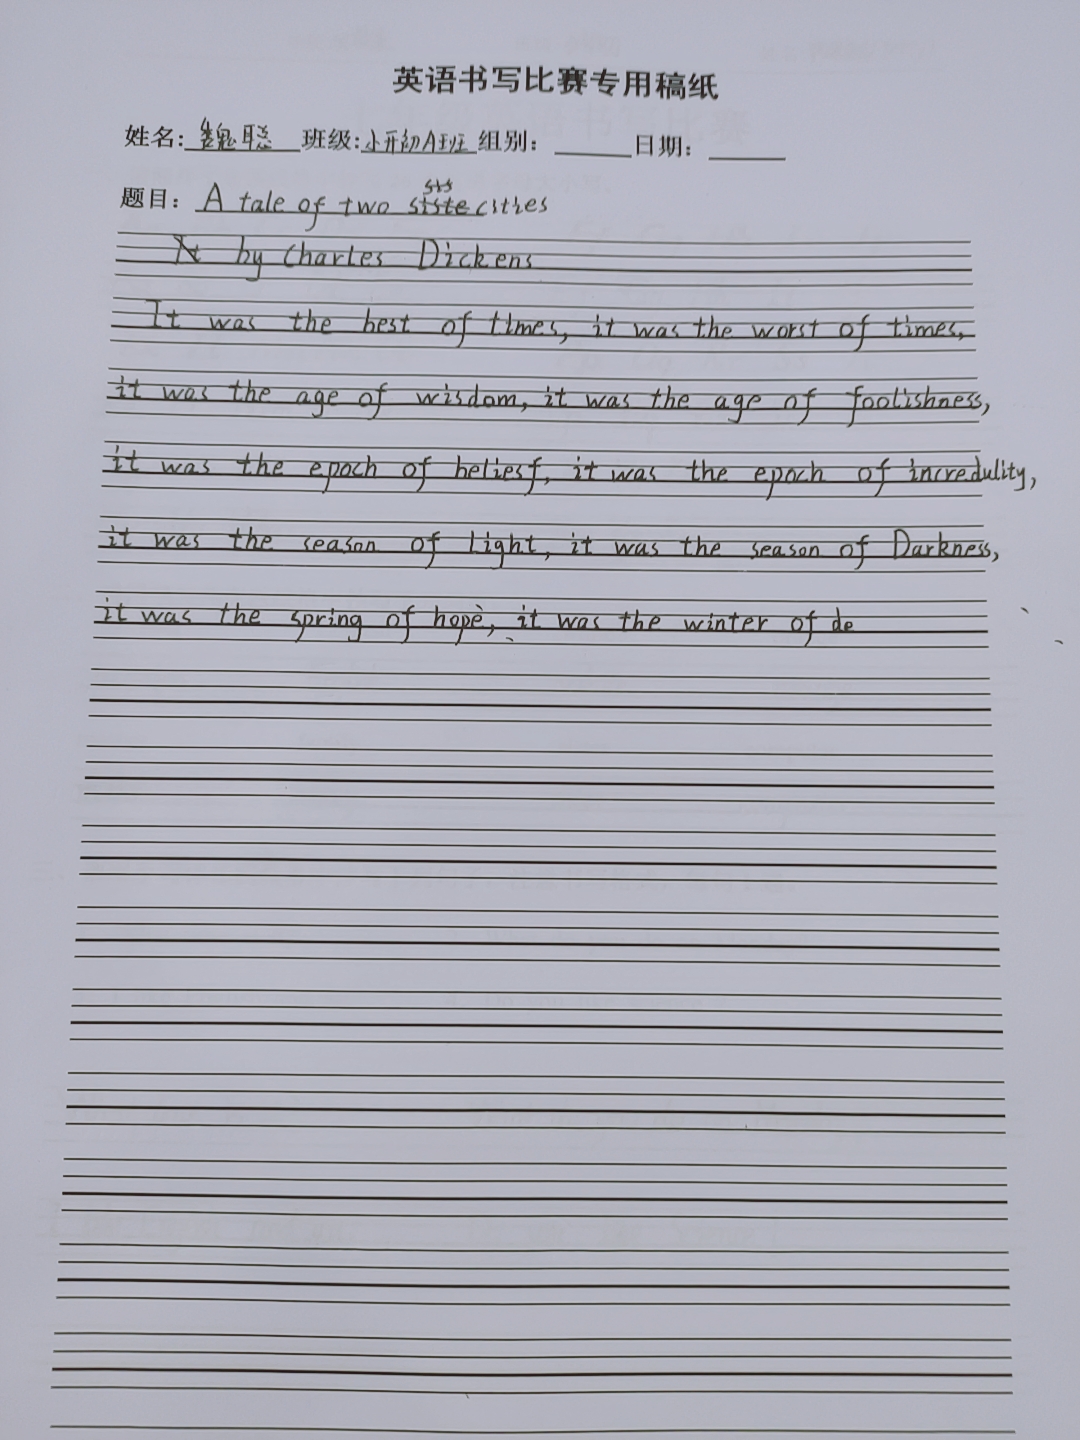 英语书写比赛专用稿纸
姓名: 魏聪 班级: 小开初A班 组别: 日期:
题目: A tale of two cities
by Charles Dickens
It was the best of times, it was the worst of times,
it was the age of wisdom, it was the age of foolishness,
it was the epoch of beliesf, it was the epoch of incredulity,
it was the season of Light, it was the season of Darkness,
it was the spring of hope, it was the winter of de